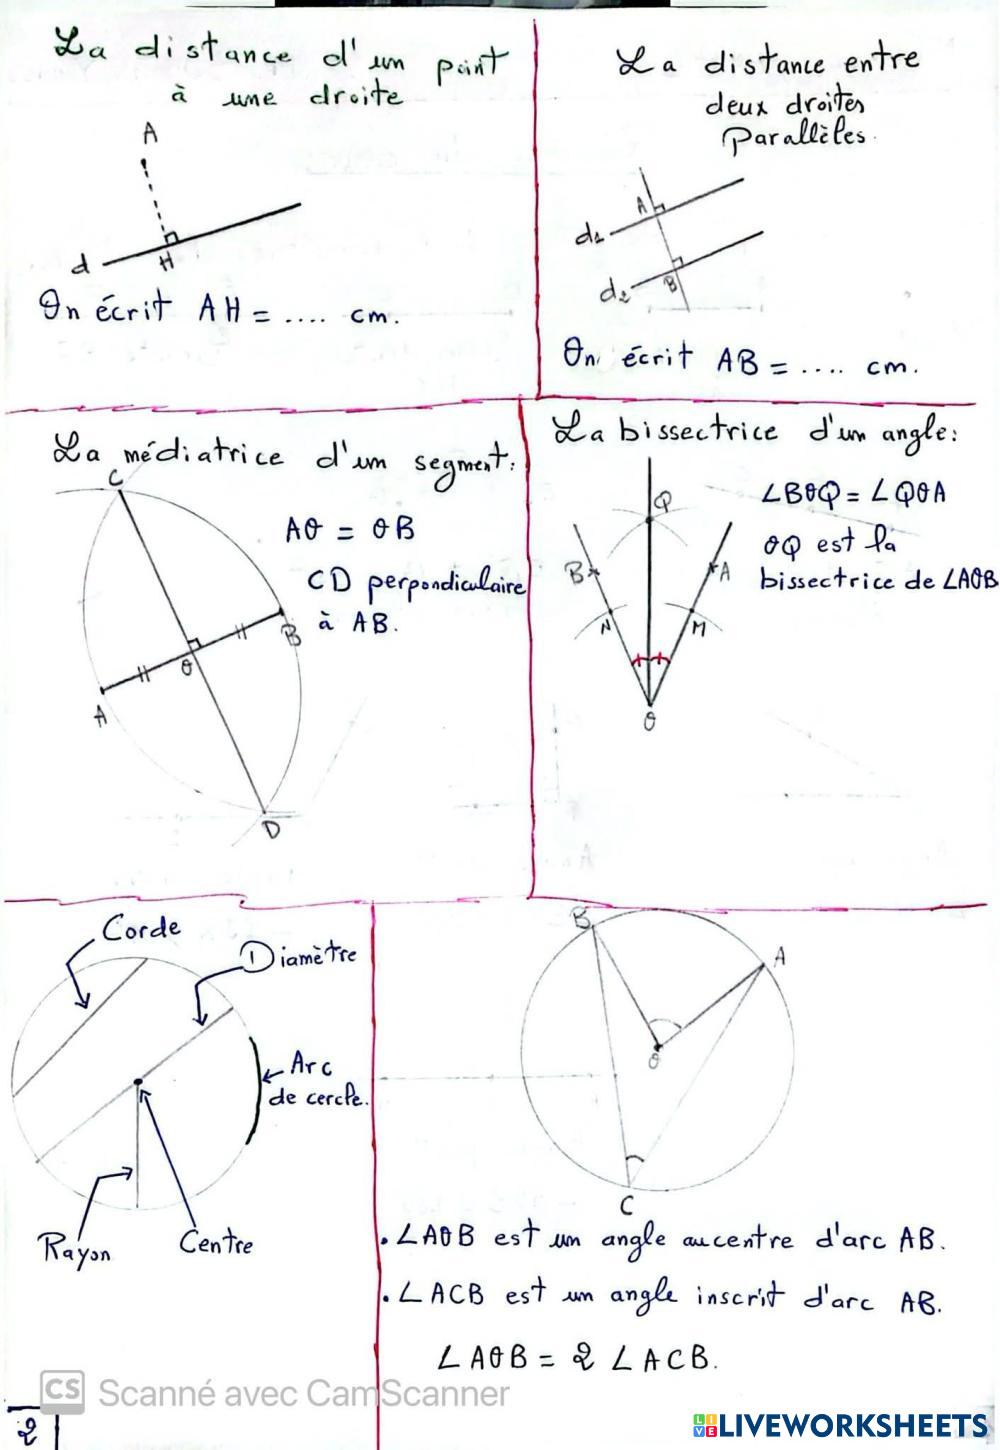 La distance d'un point
à une droite
A
d
H
On écrit AH = .... cm.
La distance entre
deux droites
Parallèles.
A
d1
B
d2
On écrit AB = .... cm.
La médiatrice d'un segment:
C
AO = OB
CD perpondiculaire
à AB.
B
O
A
D
La bissectrice d'un angle:
Q
∠BOQ = ∠QOA
OQ est la
bissectrice de ∠AOB
B
A
N
M
O
Corde
Diamètre
Arc
de cercle.
Rayon
Centre
B
A
O
C
. ∠AOB est un angle au centre d'arc AB.
. ∠ACB est un angle inscrit d'arc AB.
∠AOB = 2 ∠ACB.
CS Scanné avec CamScanner
2
LIVEWORKSHEETS